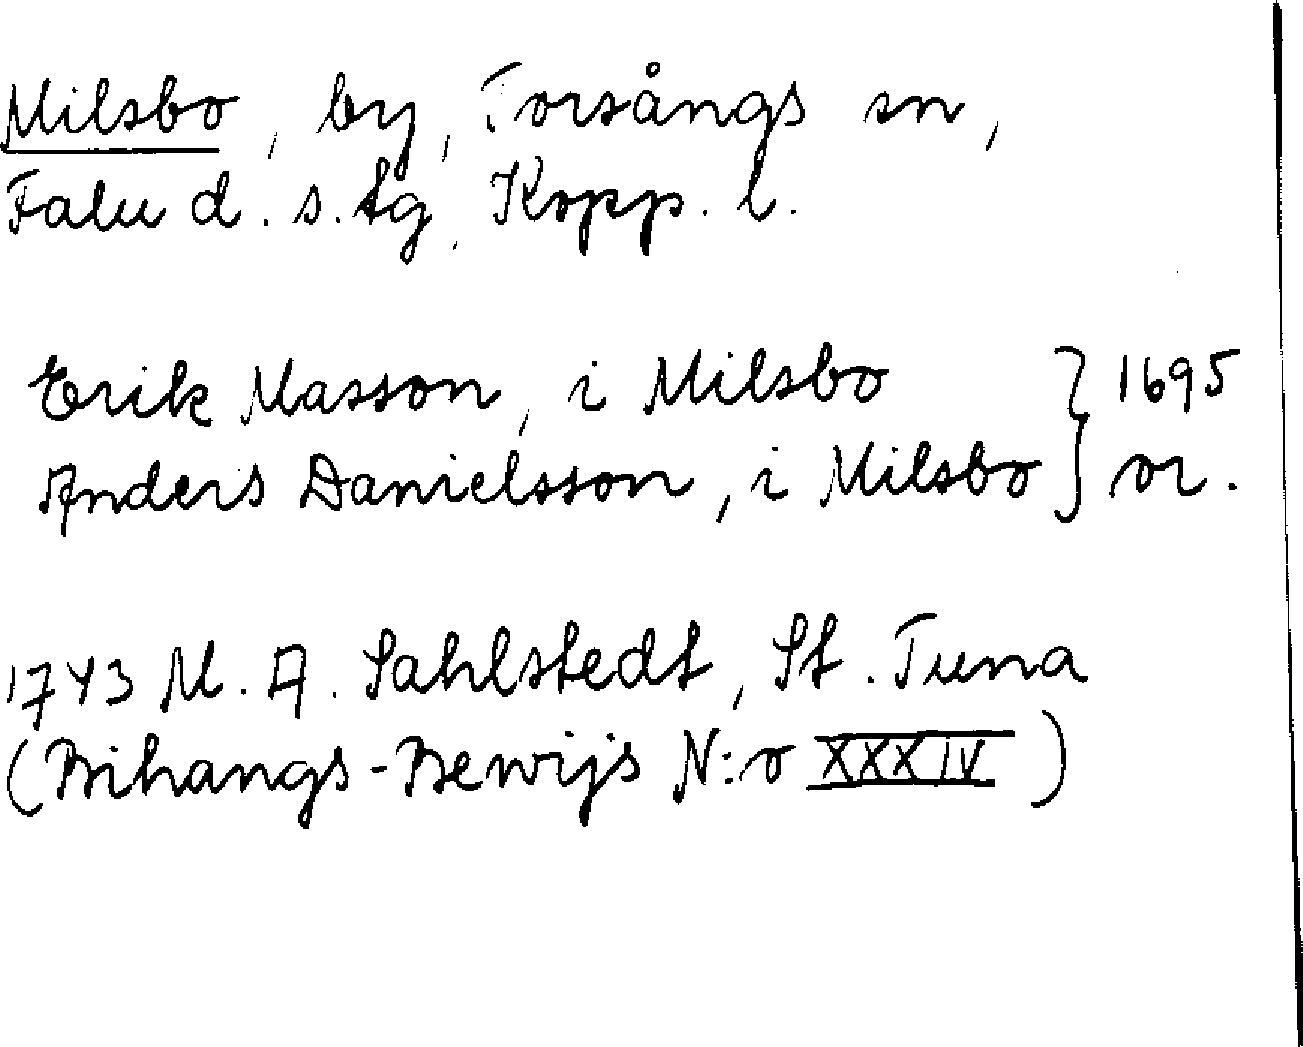 Milsbo, by, Torsångs sn,
Falu d. s. tg, Kopp. l.
Erik Masson, i Milsbo } 1695
Anders Danielsson, i Milsbo } or.
1743 M. A. Sahlstedt, St. Tuna
(Bihangs-Bewijs N:o XXXIV)